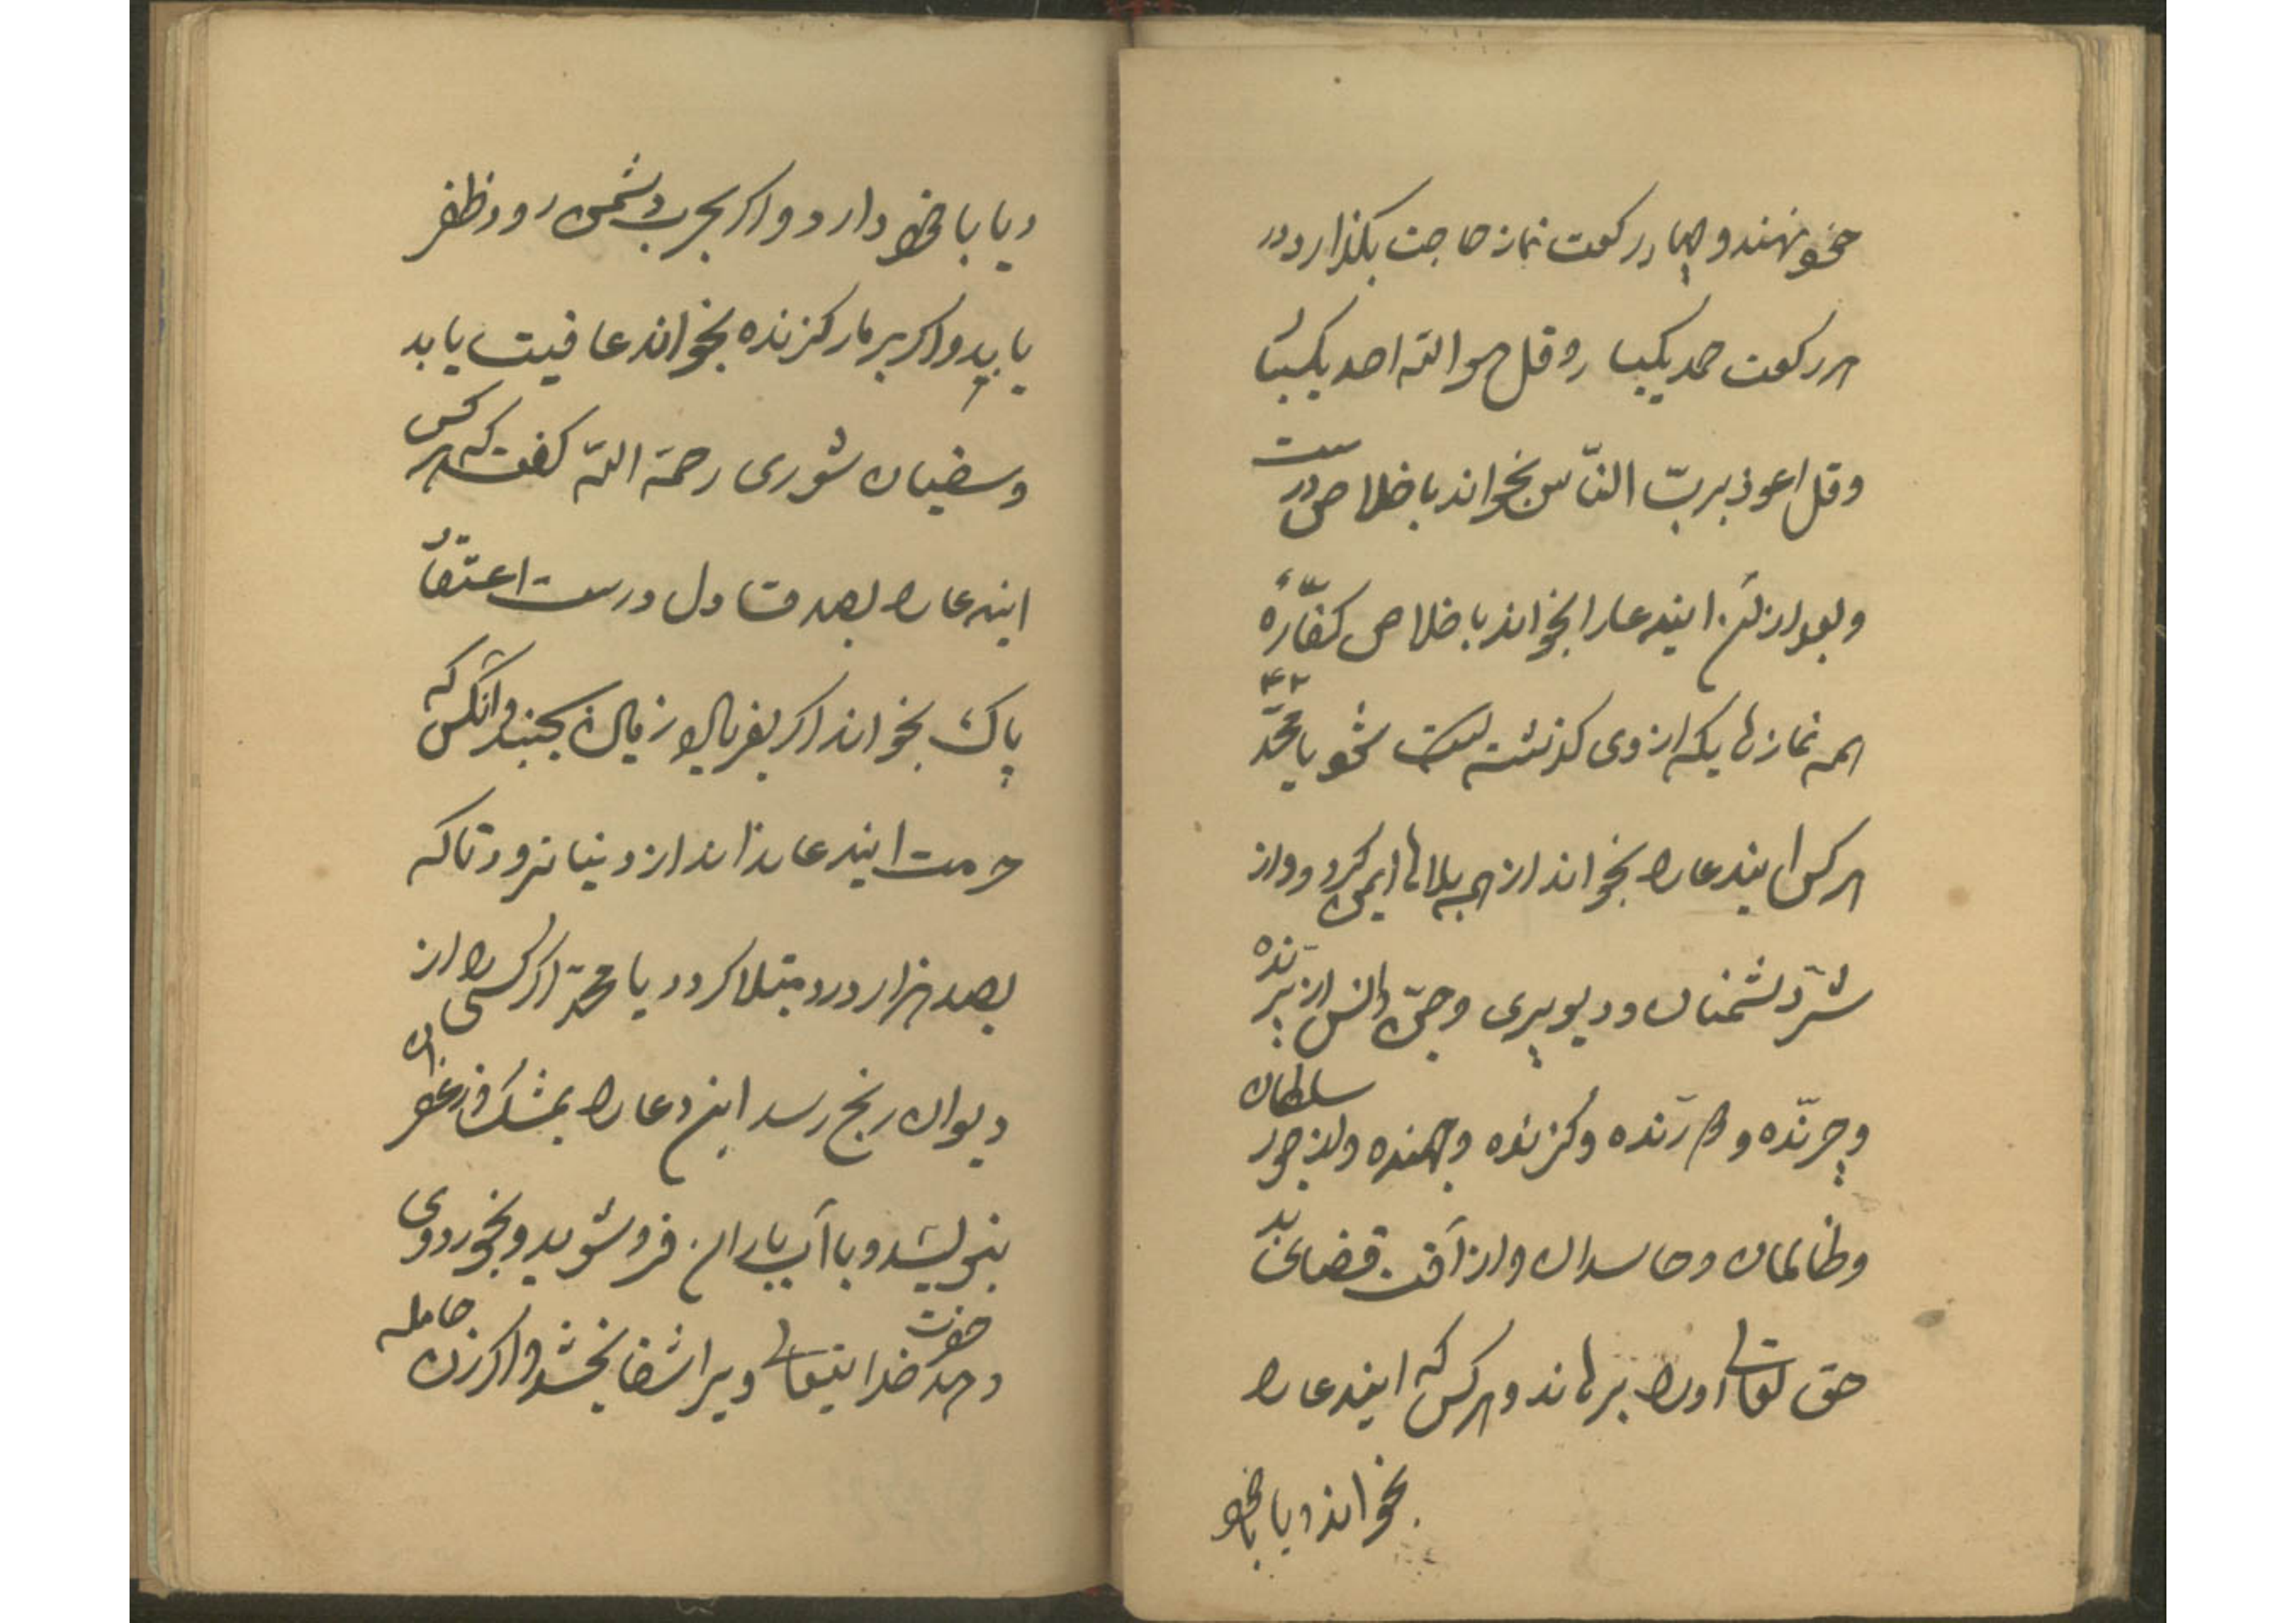 خو نهند و چهار رکعت نماز حاجت بکذارد در
هر رکعت حمد یکبار و قل هو الله احد یکبار
و قل اعوذ برب النّاس بخواند باخلاص درست
و بعد از آن ایندعا را بخواند باخلاص کفّارهٔ
همه نمازهایکه از وی کذشته است شود یا محمّد
هر کس ایندعا را بخواند از همه بلاها ایمن کردد و از
شرّ دشمنان و دیو پری و جنّ و انس از پرنده
و چرنده و درنده و کزنده و جهنده و از جور سلطان
و ظالمان و حاسدان و از آفت قضای بد
حق تعالی او را برهاند و هر کس که ایندعا را
بخواند و یا با خود
و یا با خود دارد و اکر بحرب دشمن رود ظفر
یابد و اکر بر مار کزنده بخواند عافیت یابد
و سفیان ثوری رحمة الله کفت که هر کس
ایندعا را بصدق دل درست اعتقاد
پاک بخواند اکر بفرماید زمین بجنبد و آنکس که
حرمت ایندعا نداند از دنیا نرود تا که
بصد هزار درد مبتلا کردد یا محمّد اکر کسی را از
دیوان رنج رسد این دعا را بمشک و زعفران
بنویسد و با آب باران فرو شوید و بخورد وی
دهد حضرت خدایتعالی ویرا شفا بخشد و اکر زن حامله